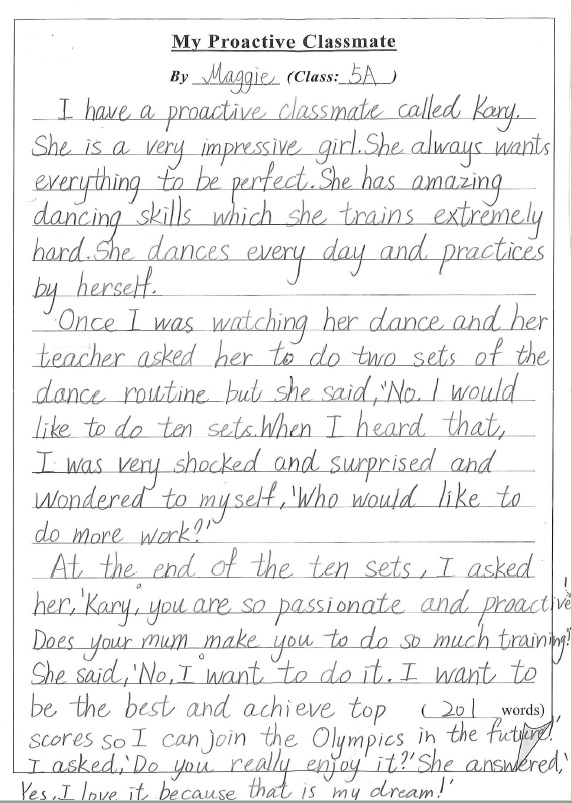 My Proactive Classmate
By Maggie (Class: 5A)
I have a proactive classmate called Kary.
She is a very impressive girl. She always wants
everything to be perfect. She has amazing
dancing skills which she trains extremely
hard. She dances every day and practices
by herself.
Once I was watching her dance and her
teacher asked her to do two sets of the
dance routine but she said, 'No. I would
like to do ten sets. When I heard that,
I was very shocked and surprised and
wondered to myself, 'Who would like to
do more work?'
At the end of the ten sets, I asked
her, 'Kary, you are so passionate and proactive!
Does your mum make you to do so much training?'
She said, 'No, I want to do it. I want to
be the best and achieve top (201 words)
scores so I can join the Olympics in the future!'
I asked, 'Do you really enjoy it?' She answered,'
Yes, I love it because that is my dream!'